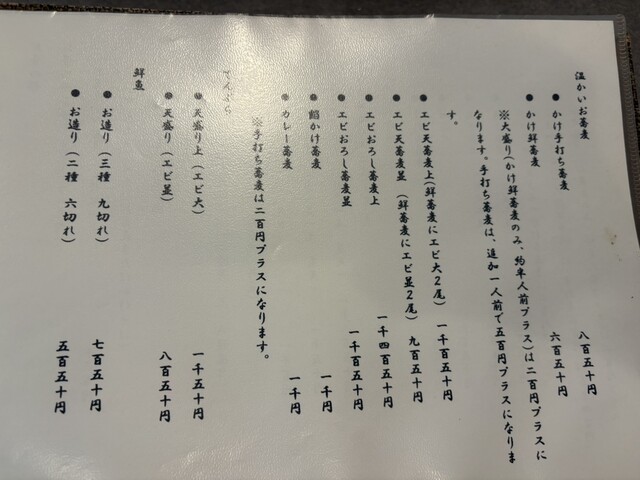 温かいお蕎麦
●かけ手打ち蕎麦 八百五十円
●かけ鮮蕎麦 六百五十円
※大盛り(かけ鮮蕎麦のみ、約半人前プラス)は二百円プラスに
なります。手打ち蕎麦は、追加一人前で五百円プラスになりま
す。
●エビ天蕎麦上(鮮蕎麦にエビ大2尾) 一千百五十円
●エビ天蕎麦並 (鮮蕎麦にエビ並2尾) 九百五十円
●エビおろし蕎麦上 一千四百五十円
●エビおろし蕎麦並 一千百五十円
●餡かけ蕎麦 一千円
●カレー蕎麦 一千円
※手打ち蕎麦は二百円プラスになります。
てんぷら
●天盛り上(エビ大) 一千五十円
●天盛り(エビ並) 八百五十円
鮮魚
●お造り(三種 九切れ) 七百五十円
●お造り(二種 六切れ) 五百五十円